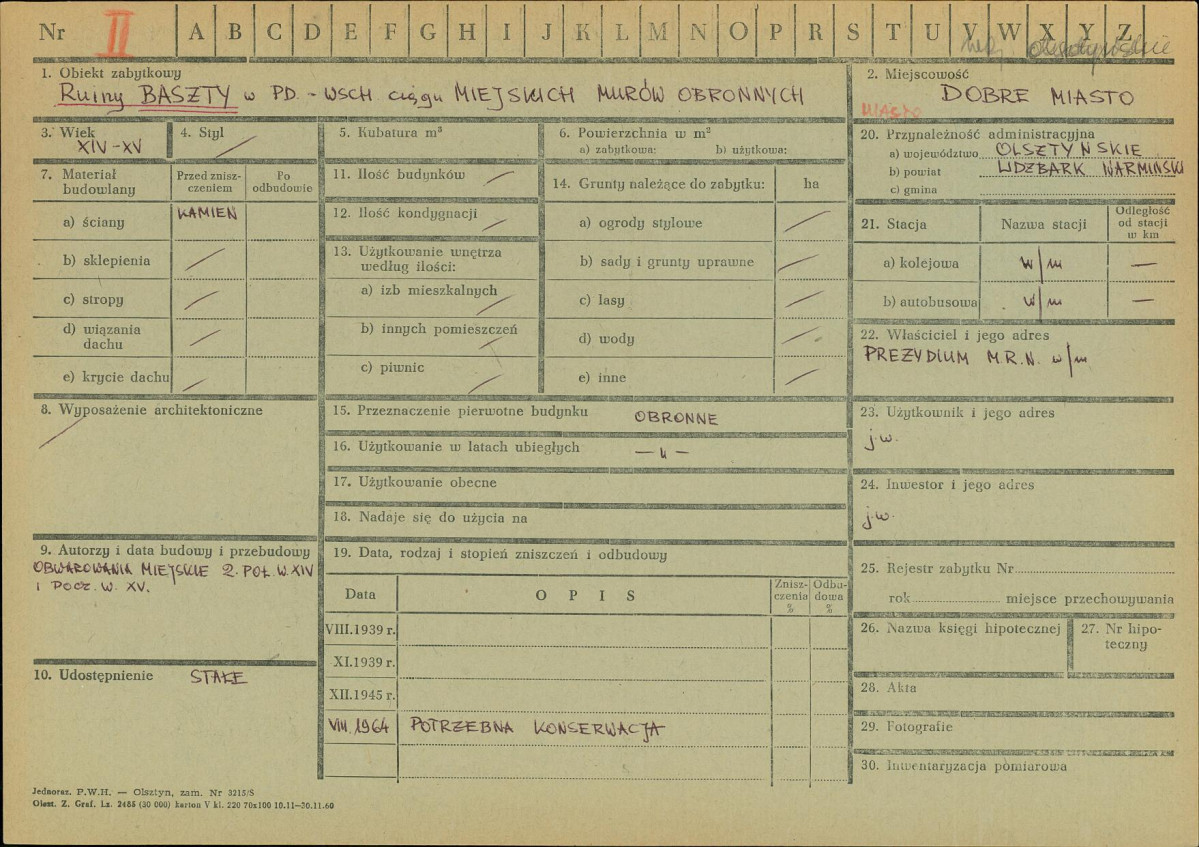 Nr II A B C D E F G H I J K L M N O P R S T U V W X Y Z
woj. olsztyńskie
1. Obiekt zabytkowy
Ruiny BASZTY w PD.-WSCH. ciągu MIEJSKICH MURÓW OBRONNYCH
2. Miejscowość
DOBRE MIASTO
MIASTO
3. Wiek
XIV-XV
4. Styl
5. Kubatura m³
6. Powierzchnia w m²
a) zabytkowa: b) użytkowa:
7. Materiał
budowlany
Przed znisz-
czeniem
Po
odbudowie
a) ściany
KAMIEŃ
b) sklepienia
c) stropy
d) wiązania
dachu
e) krycie dachu
8. Wyposażenie architektoniczne
9. Autorzy i data budowy i przebudowy
OBWAROWANIA MIEJSKIE 2. POŁ. W. XIV
I POCZ. W. XV.
10. Udostępnienie STAŁE
11. Ilość budynków
12. Ilość kondygnacji
13. Użytkowanie wnętrza
według ilości:
a) izb mieszkalnych
b) innych pomieszczeń
c) piwnic
14. Grunty należące do zabytku: ha
a) ogrody stylowe
b) sady i grunty uprawne
c) lasy
d) wody
e) inne
15. Przeznaczenie pierwotne budynku OBRONNE
16. Użytkowanie w latach ubiegłych — „ —
17. Użytkowanie obecne
18. Nadaje się do użycia na
19. Data, rodzaj i stopień zniszczeń i odbudowy
Data O P I S
Znisz-
czenia
%
Odbu-
dowa
%
VIII.1939 r.
XI.1939 r.
XII.1945 r.
VIII.1964 POTRZEBNA KONSERWACJA
20. Przynależność administracyjna
a) województwo OLSZTYŃSKIE
b) powiat LIDZBARK WARMIŃSKI
c) gmina
21. Stacja Nazwa stacji
Odległość
od stacji
w km
a) kolejowa w/m —
b) autobusowa w/m —
22. Właściciel i jego adres
PREZYDIUM M.R.N. w/m
23. Użytkownik i jego adres
j.w.
24. Inwestor i jego adres
j.w.
25. Rejestr zabytku Nr
rok miejsce przechowywania
26. Nazwa księgi hipotecznej
27. Nr hipo-
teczny
28. Akta
29. Fotografie
30. Inwentaryzacja pomiarowa
Jednoraz. P.W.H. — Olsztyn, zam. Nr 3215/S
Olszt. Z. Graf. Lz. 2485 (30 000) karton V kl. 220 70x100 10.11—30.11.60